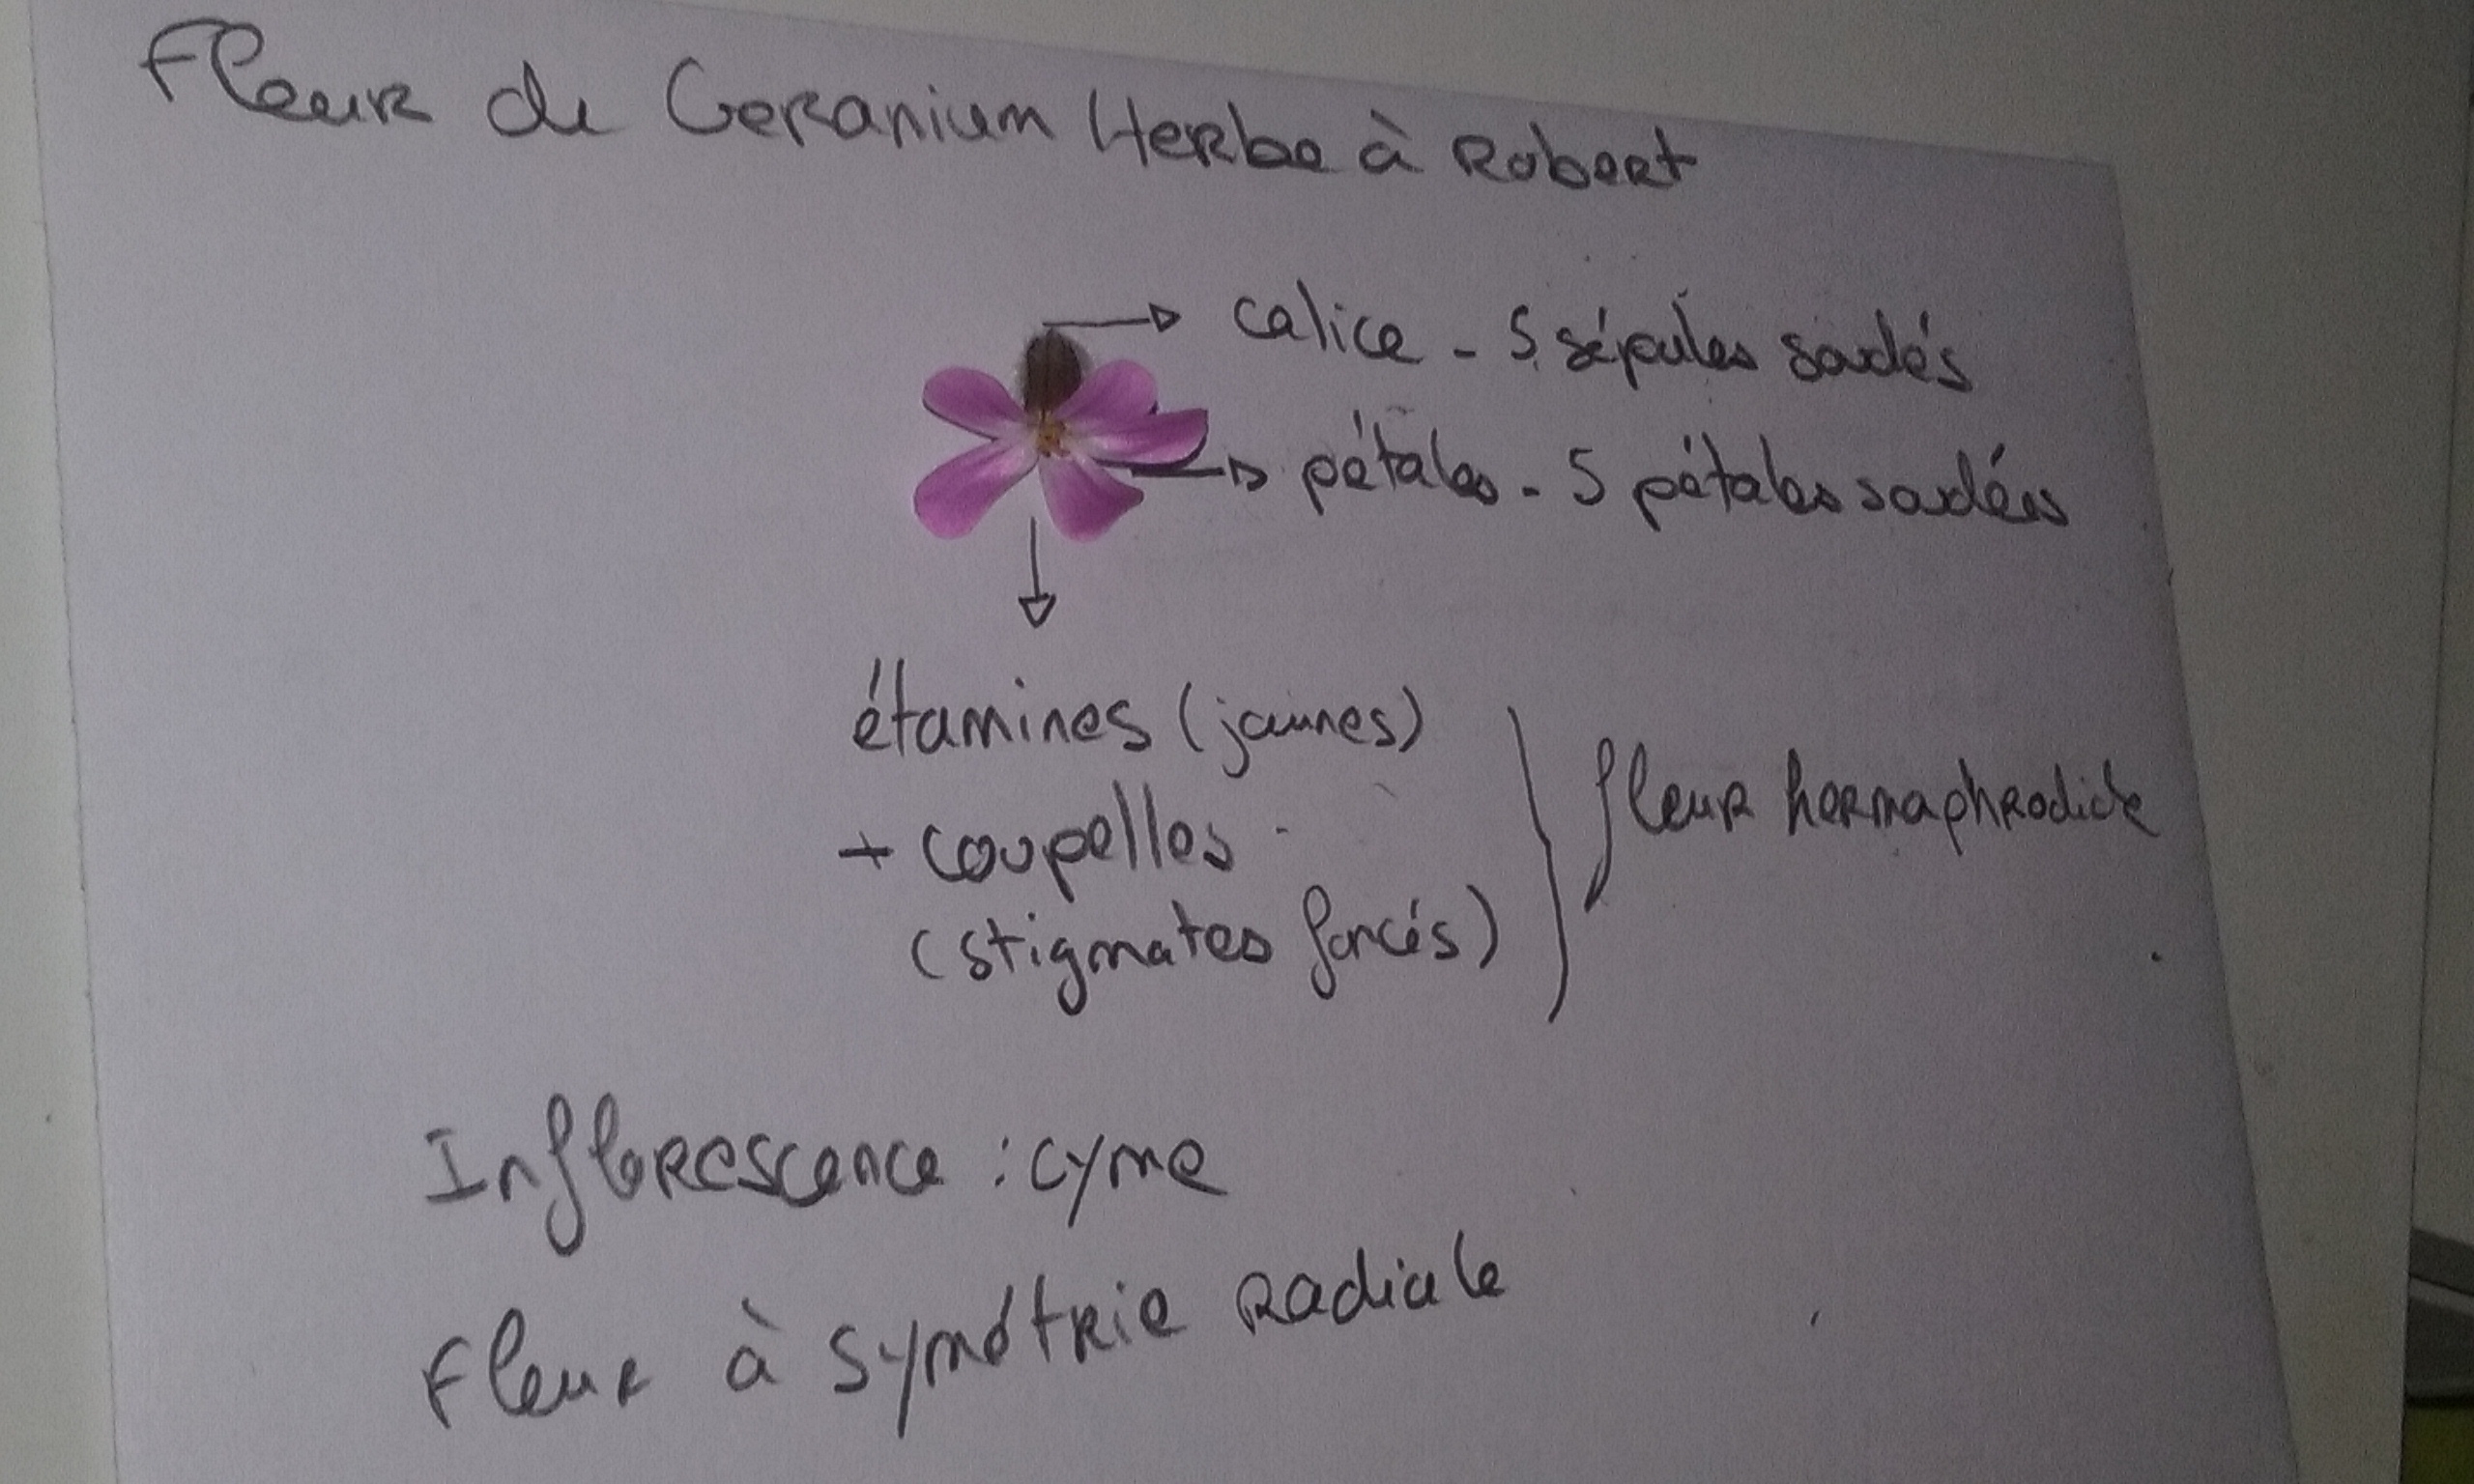 Fleur de Geranium Herbe à Robert
calice - 5 sépales soudés
pétales - 5 pétales soudés
étamines (jaunes)
+ coupelles
(stigmates foncés)
fleur hermaphrodite
Inflorescence : cyme
Fleur à symétrie radiale